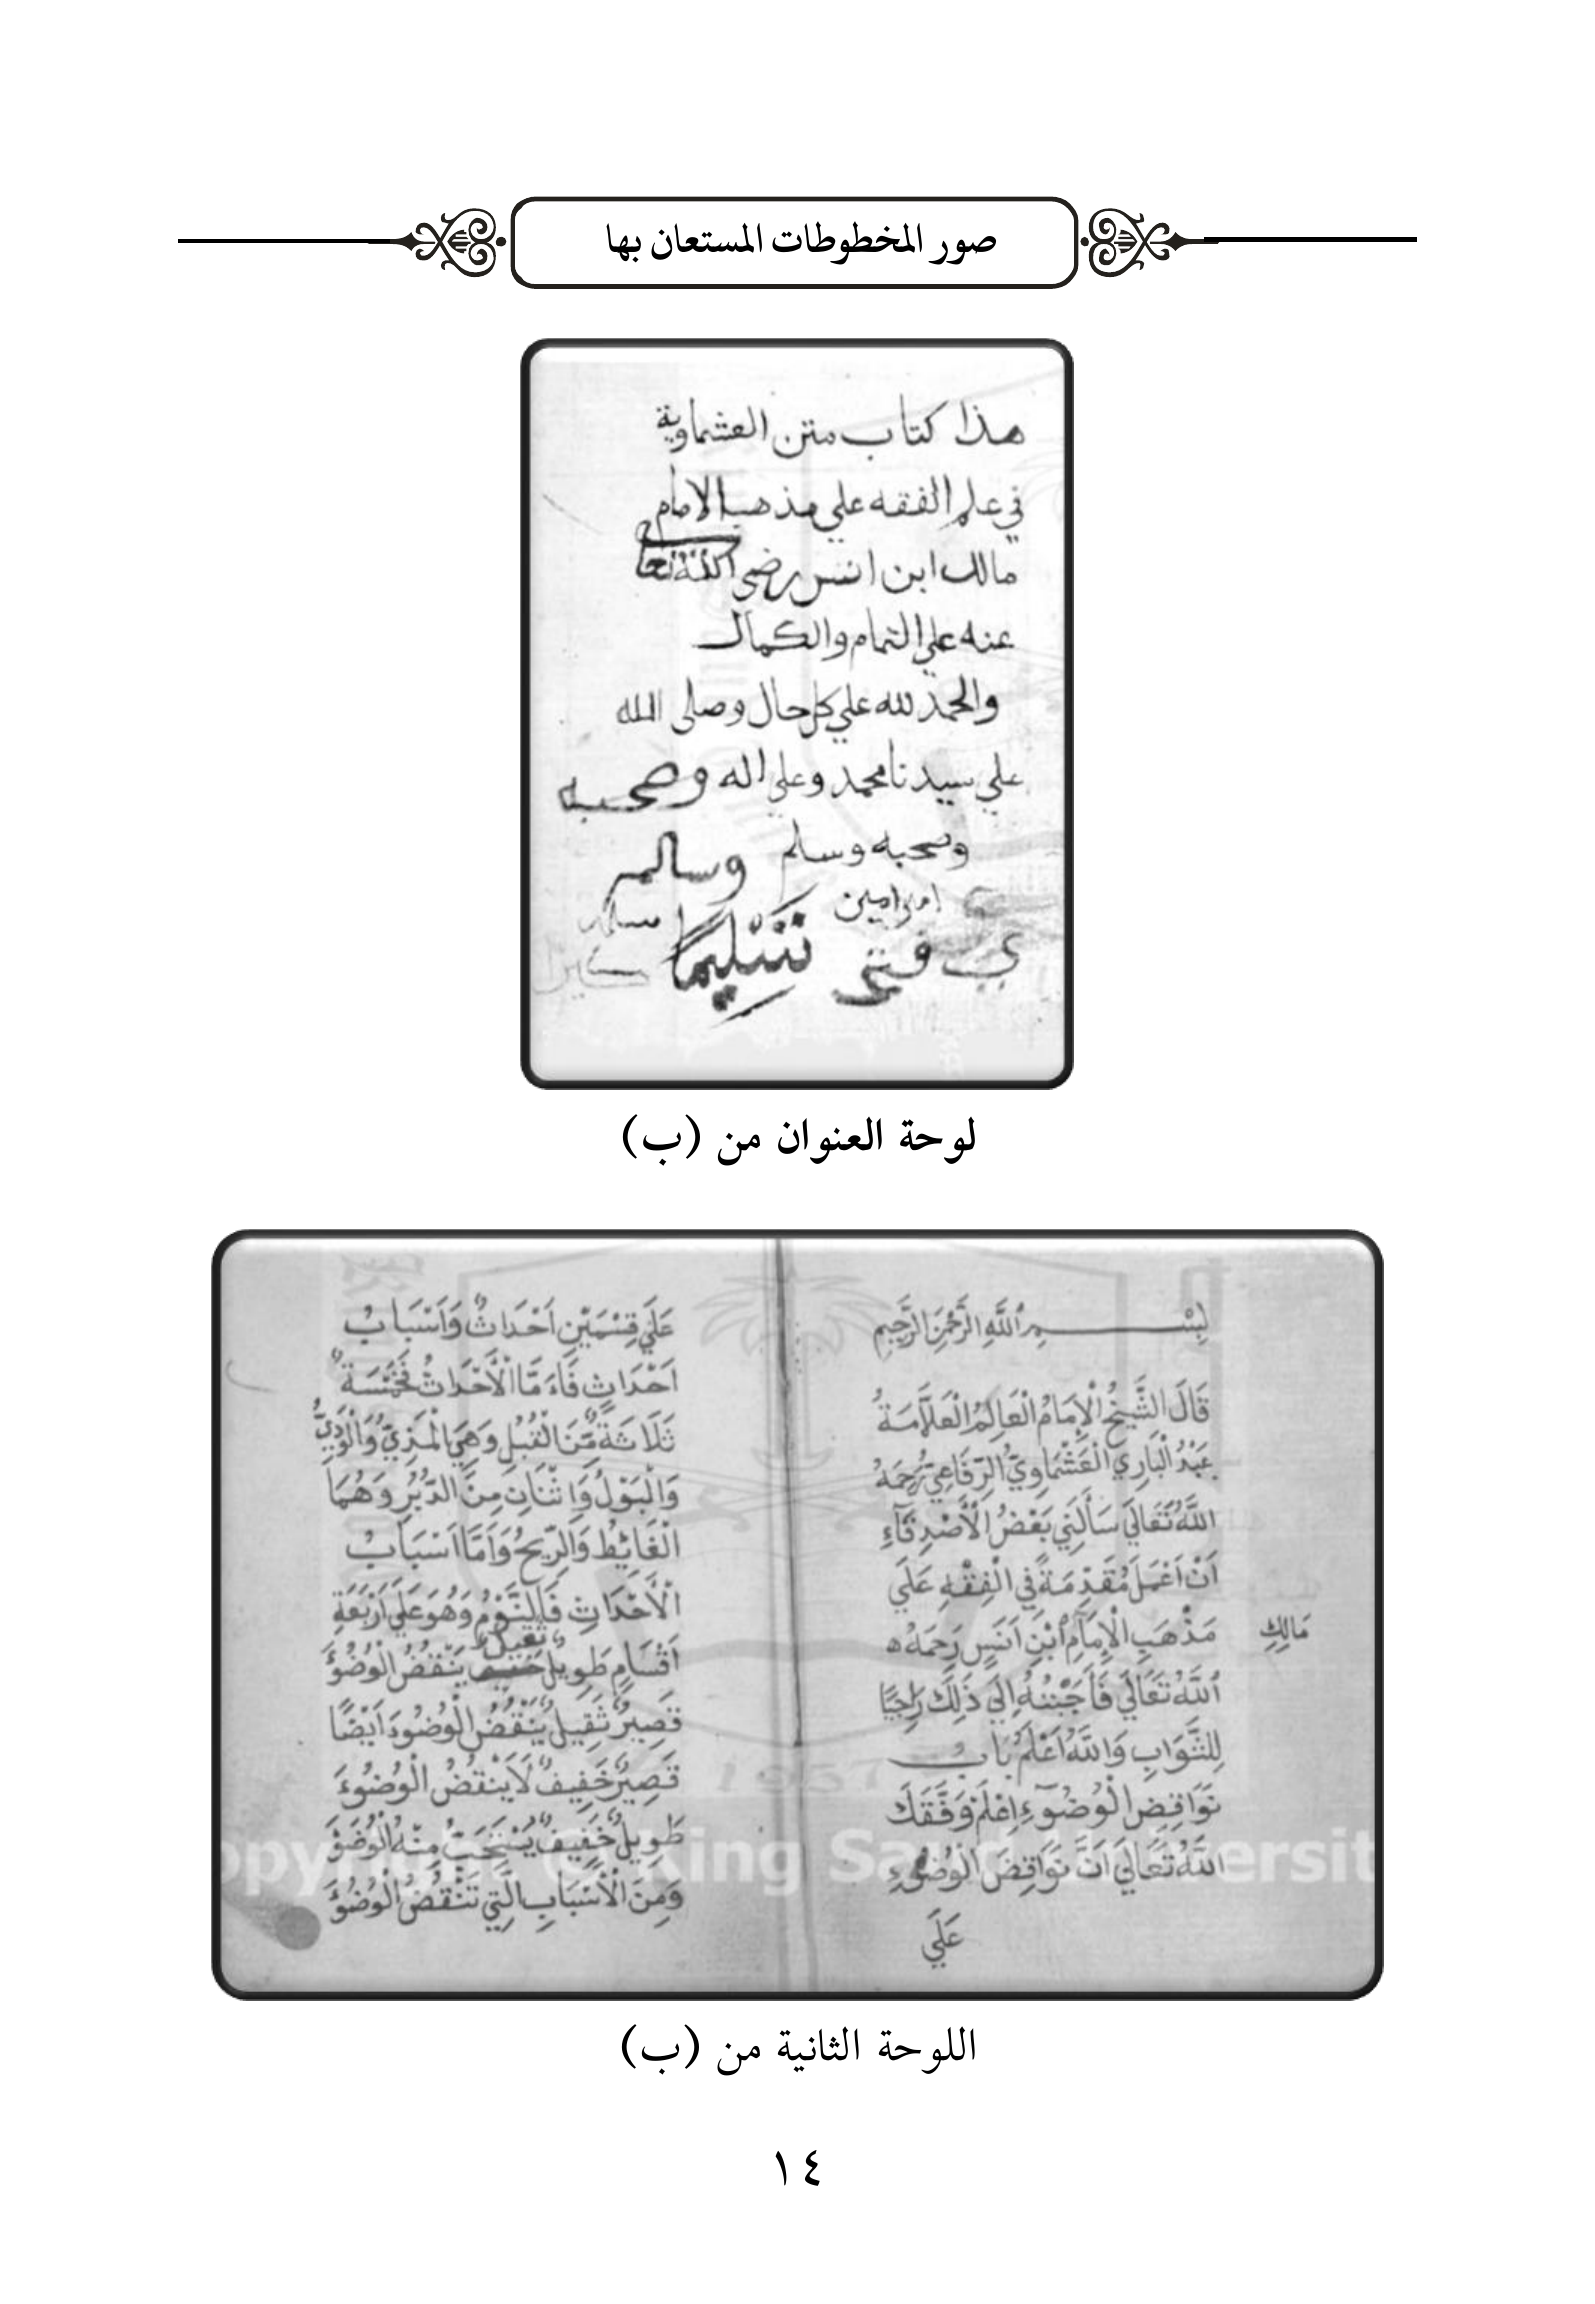 صور المخطوطات المستعان بها
هذا كتاب متن العشماوية
في علم الفقه علي مذهب الامام
مالك ابن انس رضي الله تعا
عنه علي التمام والكمال
والحمد لله علي كل حال وصلى الله
علي سيدنا محمد وعلي اله وصحبه
وصحبه وسلم وسالم
امين
تَسْلِيمًا
لوحة العنوان من (ب)
بِسْمِ اللَّهِ الرَّحْمَنِ الرَّحِيمِ
قَالَ الشَّيْخُ الْإِمَامُ الْعَالِمُ الْعَلَّامَةُ
عَبْدُ الْبَارِي الْعَشْمَاوِيُّ الرِّفَاعِيُّ رَحِمَهُ
اللَّهُ تَعَالَي سَأَلَنِي بَعْضُ الْأَصْدِقَآءِ
أَنْ أَعْمَلَ مُقَدِّمَةً فِي الْفِقْهِ عَلَي
مَذْهَبِ الْإِمَامِ ابْنِ اَنَسٍ رَحِمَهُ
مَالِكِ
اللَّهُ تَعَالَي فَأَجَبْتُهُ إِلَي ذَلِكَ رَاجِيًا
لِلثَّوَابِ وَاللَّهُ اَعْلَمُ بَابُ
نَوَاقِضِ الْوُضُوٓءِ اِعْلَمْ وَفَّقَكَ
اللَّهُ تَعَالَي اَنَّ نَوَاقِضَ الْوُضُوءِ
عَلَي
عَلَي قِسْمَيْنِ اَحْدَاثٌ وَاَسْبَابُ
اَحْدَاثٍ فَاَمَّا الْأَحْدَاثُ فَخَمْسَةٌ
ثَلَاثَةٌ مِّنَ الْقُبُلِ وَهِيَ الْمَذِيُّ وَالْوَدِيُّ
وَالْبَوْلُ وَاثْنَانِ مِنَ الدُّبُرِ وَهُمَا
الْغَائِطُ وَالرِّيحُ وَاَمَّا اَسْبَابُ
الْأَحْدَاثِ فَالنَّوْمُ وَهُوَ عَلَي اَرْبَعَةِ
ثقيل
اَقْسَامٍ طَوِيلٌ يَنْقُضُ الْوُضُؤَ
قَصِيرٌ ثَقِيلٌ يَنْقُضُ الْوُضُوءَ اَيْضًا
قَصِيرٌ خَفِيفٌ لَا يَنْقُضُ الْوُضُوءَ
طَوِيلٌ خَفِيفٌ يُسْتَحَبُّ مِنْهُ الْوُضُوءُ
وَمِنَ الْأَسْبَابِ الَّتِي تَنْقُضُ الْوُضُؤَ
1957
اللوحة الثانية من (ب)
١٤